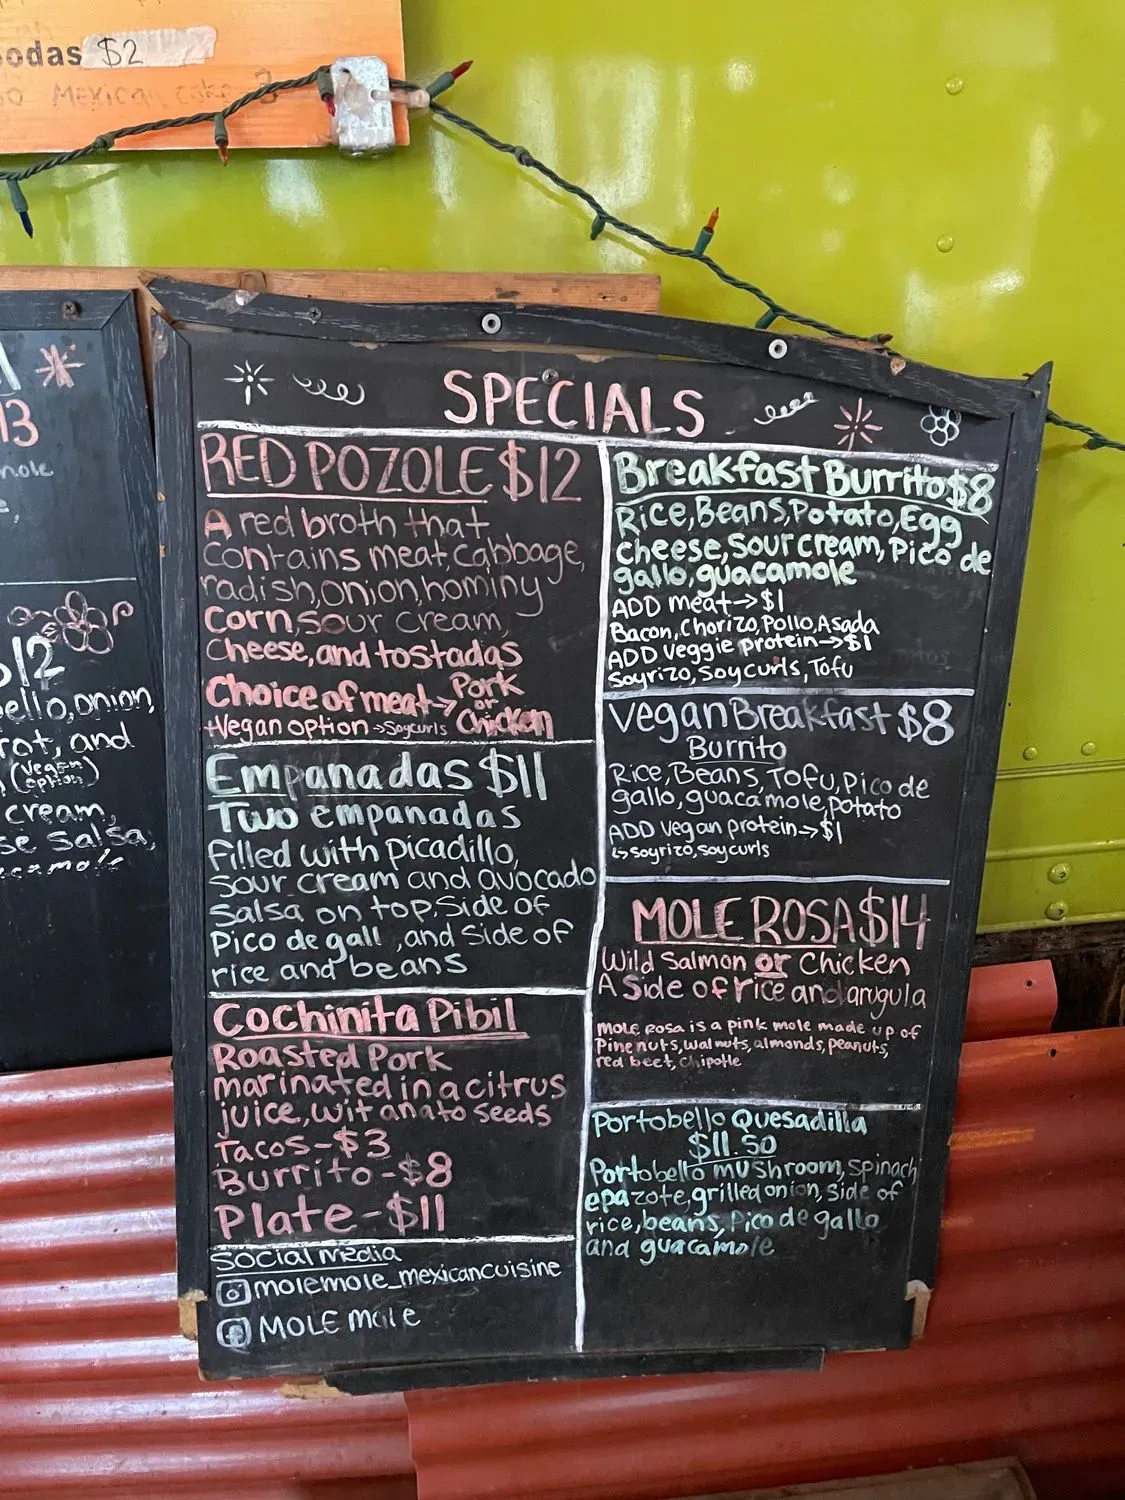 odas $2
MEXICAN cake
13
mole
$12
ello, onion,
rot, and
(vegan
option)
cream,
se salsa,
SPECIALS
RED POZOLE $12
A red broth that
contains meat, cabbage,
radish, onion, hominy
corn, sour cream,
cheese, and tostadas
choice of meat→ Pork
or
+vegan option →soycurls Chicken
Empanadas $11
Two empanadas
filled with picadillo,
sour cream and avocado
salsa on top. Side of
pico de gall , and side of
rice and beans
Cochinita Pibil
Roasted Pork
marinated in a citrus
juice, wit anato seeds
Tacos-$3
Burrito-$8
Plate-$11
Social Media
molemole_mexicancuisine
MOLE mole
Breakfast Burrito $8
Rice, Beans, Potato, Egg
cheese, sour cream, Pico de
gallo, guacamole
ADD meat→$1
Bacon, Chorizo, Pollo, Asada
ADD veggie protein→$1
Soyrizo, Soycurls, Tofu
Vegan Breakfast $8
Burrito
Rice, Beans, Tofu, Pico de
gallo, guacamole, potato
ADD vegan protein→$1
↳soyrizo, soycurls
MOLE ROSA $14
Wild Salmon or Chicken
A Side of rice and arugula
MOLE Rosa is a pink mole made up of
Pine nuts, walnuts, almonds, peanuts,
red beet, chipotle
Portobello Quesadilla
$11.50
Portobello mushroom, spinach
epazote, grilled onion, side of
rice, beans, Pico de gallo
and guacamole